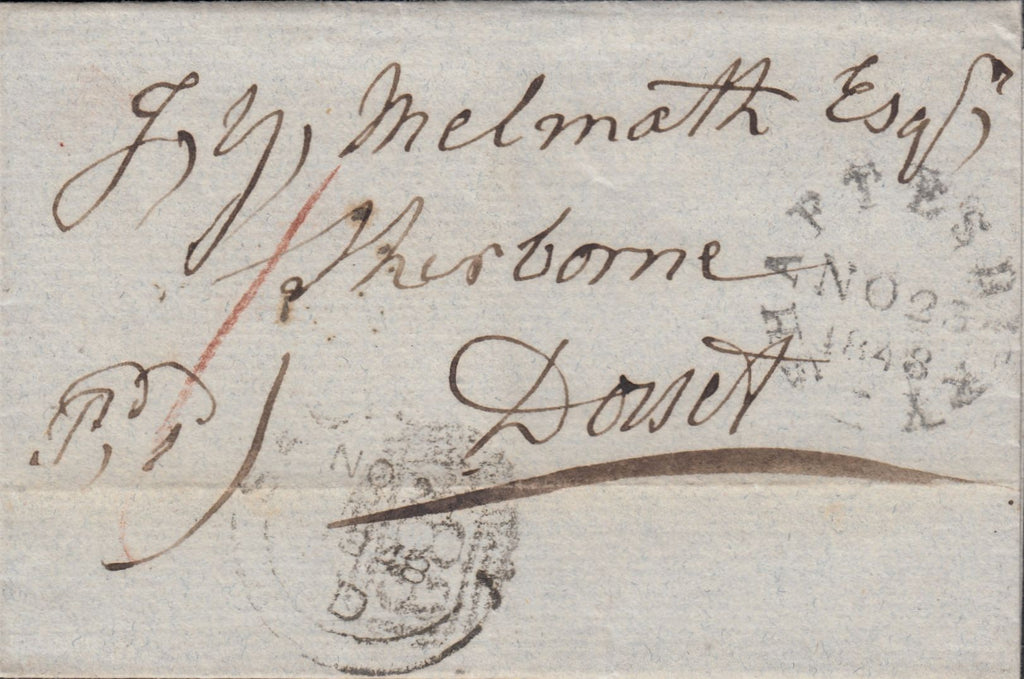 J, Y, Melmoth Esqr,
Sherborne
Dorset
Pd, 1
SHAFTESBURY
NO 23
1848
NO
D